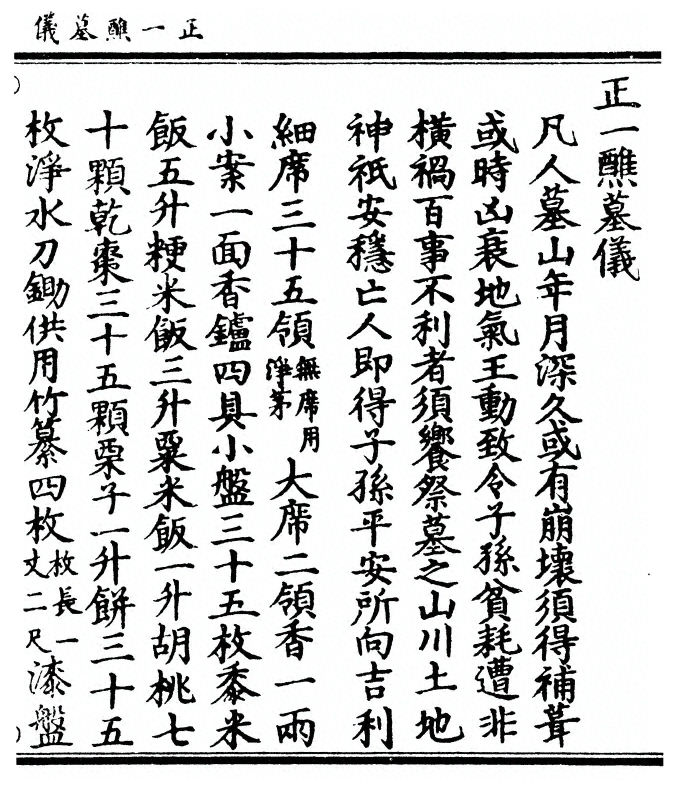 正一醮墓儀
正一醮墓儀
凡人墓山年月深久或有崩壞須得補葺
或時凶衰地氣王動致令子孫貧耗遭非
橫禍百事不利者須饗祭墓之山川土地
神祇安穩亡人即得子孫平安所向吉利
細席三十五領無席用淨茅大席二領香一兩
小案一面香鑪四具小盤三十五枚黍米
飯五升粳米飯三升粟米飯一升胡桃七
十顆乾棗三十五顆栗子一升餅三十五
枚淨水刀鋤供用竹纂四枚枚長一丈二尺漆盤